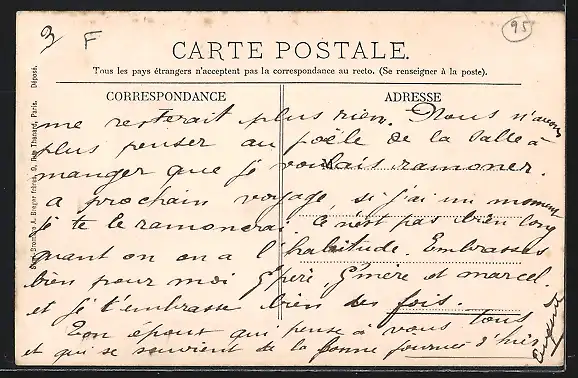 3
F
95
CARTE POSTALE.
Tous les pays étrangers n'acceptent pas la correspondance au recto. (Se renseigner à la poste).
CORRESPONDANCE
ADRESSE
me resterait plus rien. Nous n'avons
plus penser au poële de la salle à
manger que je voulais ramoner.
a prochain voyage, si j'ai un moment
je te le ramonerai. Ce n'est pas bien long
quant on on a l'habitude. Embrasses
bien pour moi G'père, G'mère et marcel.
et je t'embrasse bien des fois.
Ton époux qui pense à vous tous
et qui se souvient de la bonne journée d'hier.
Déposé.
Paris.